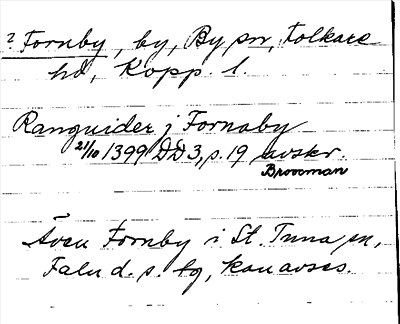 ? Fornby, by, By sn, Folkare
hd, Kopp. l.
Ranguider j Fornaby
21/10 1399 DD3, s. 19 avskr.
Brocman
Även Fornby i St. Tuna sn,
Falu d. s. lg, kan avses.